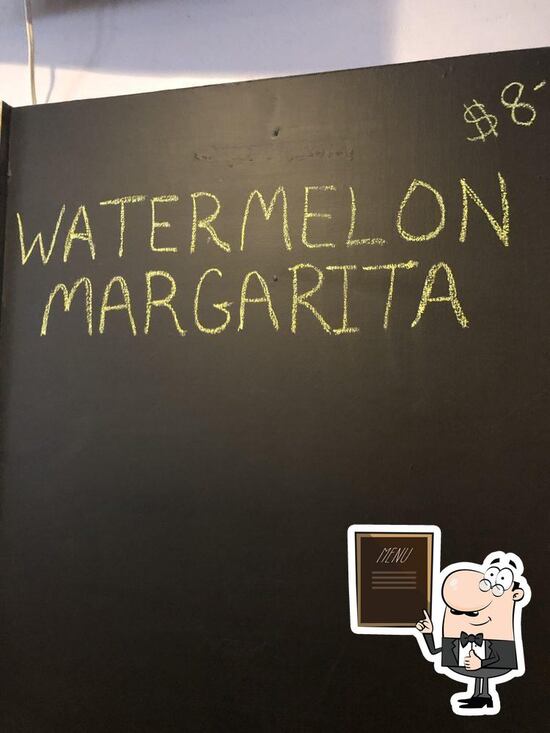 $8-
WATERMELON
MARGARITA
MENU